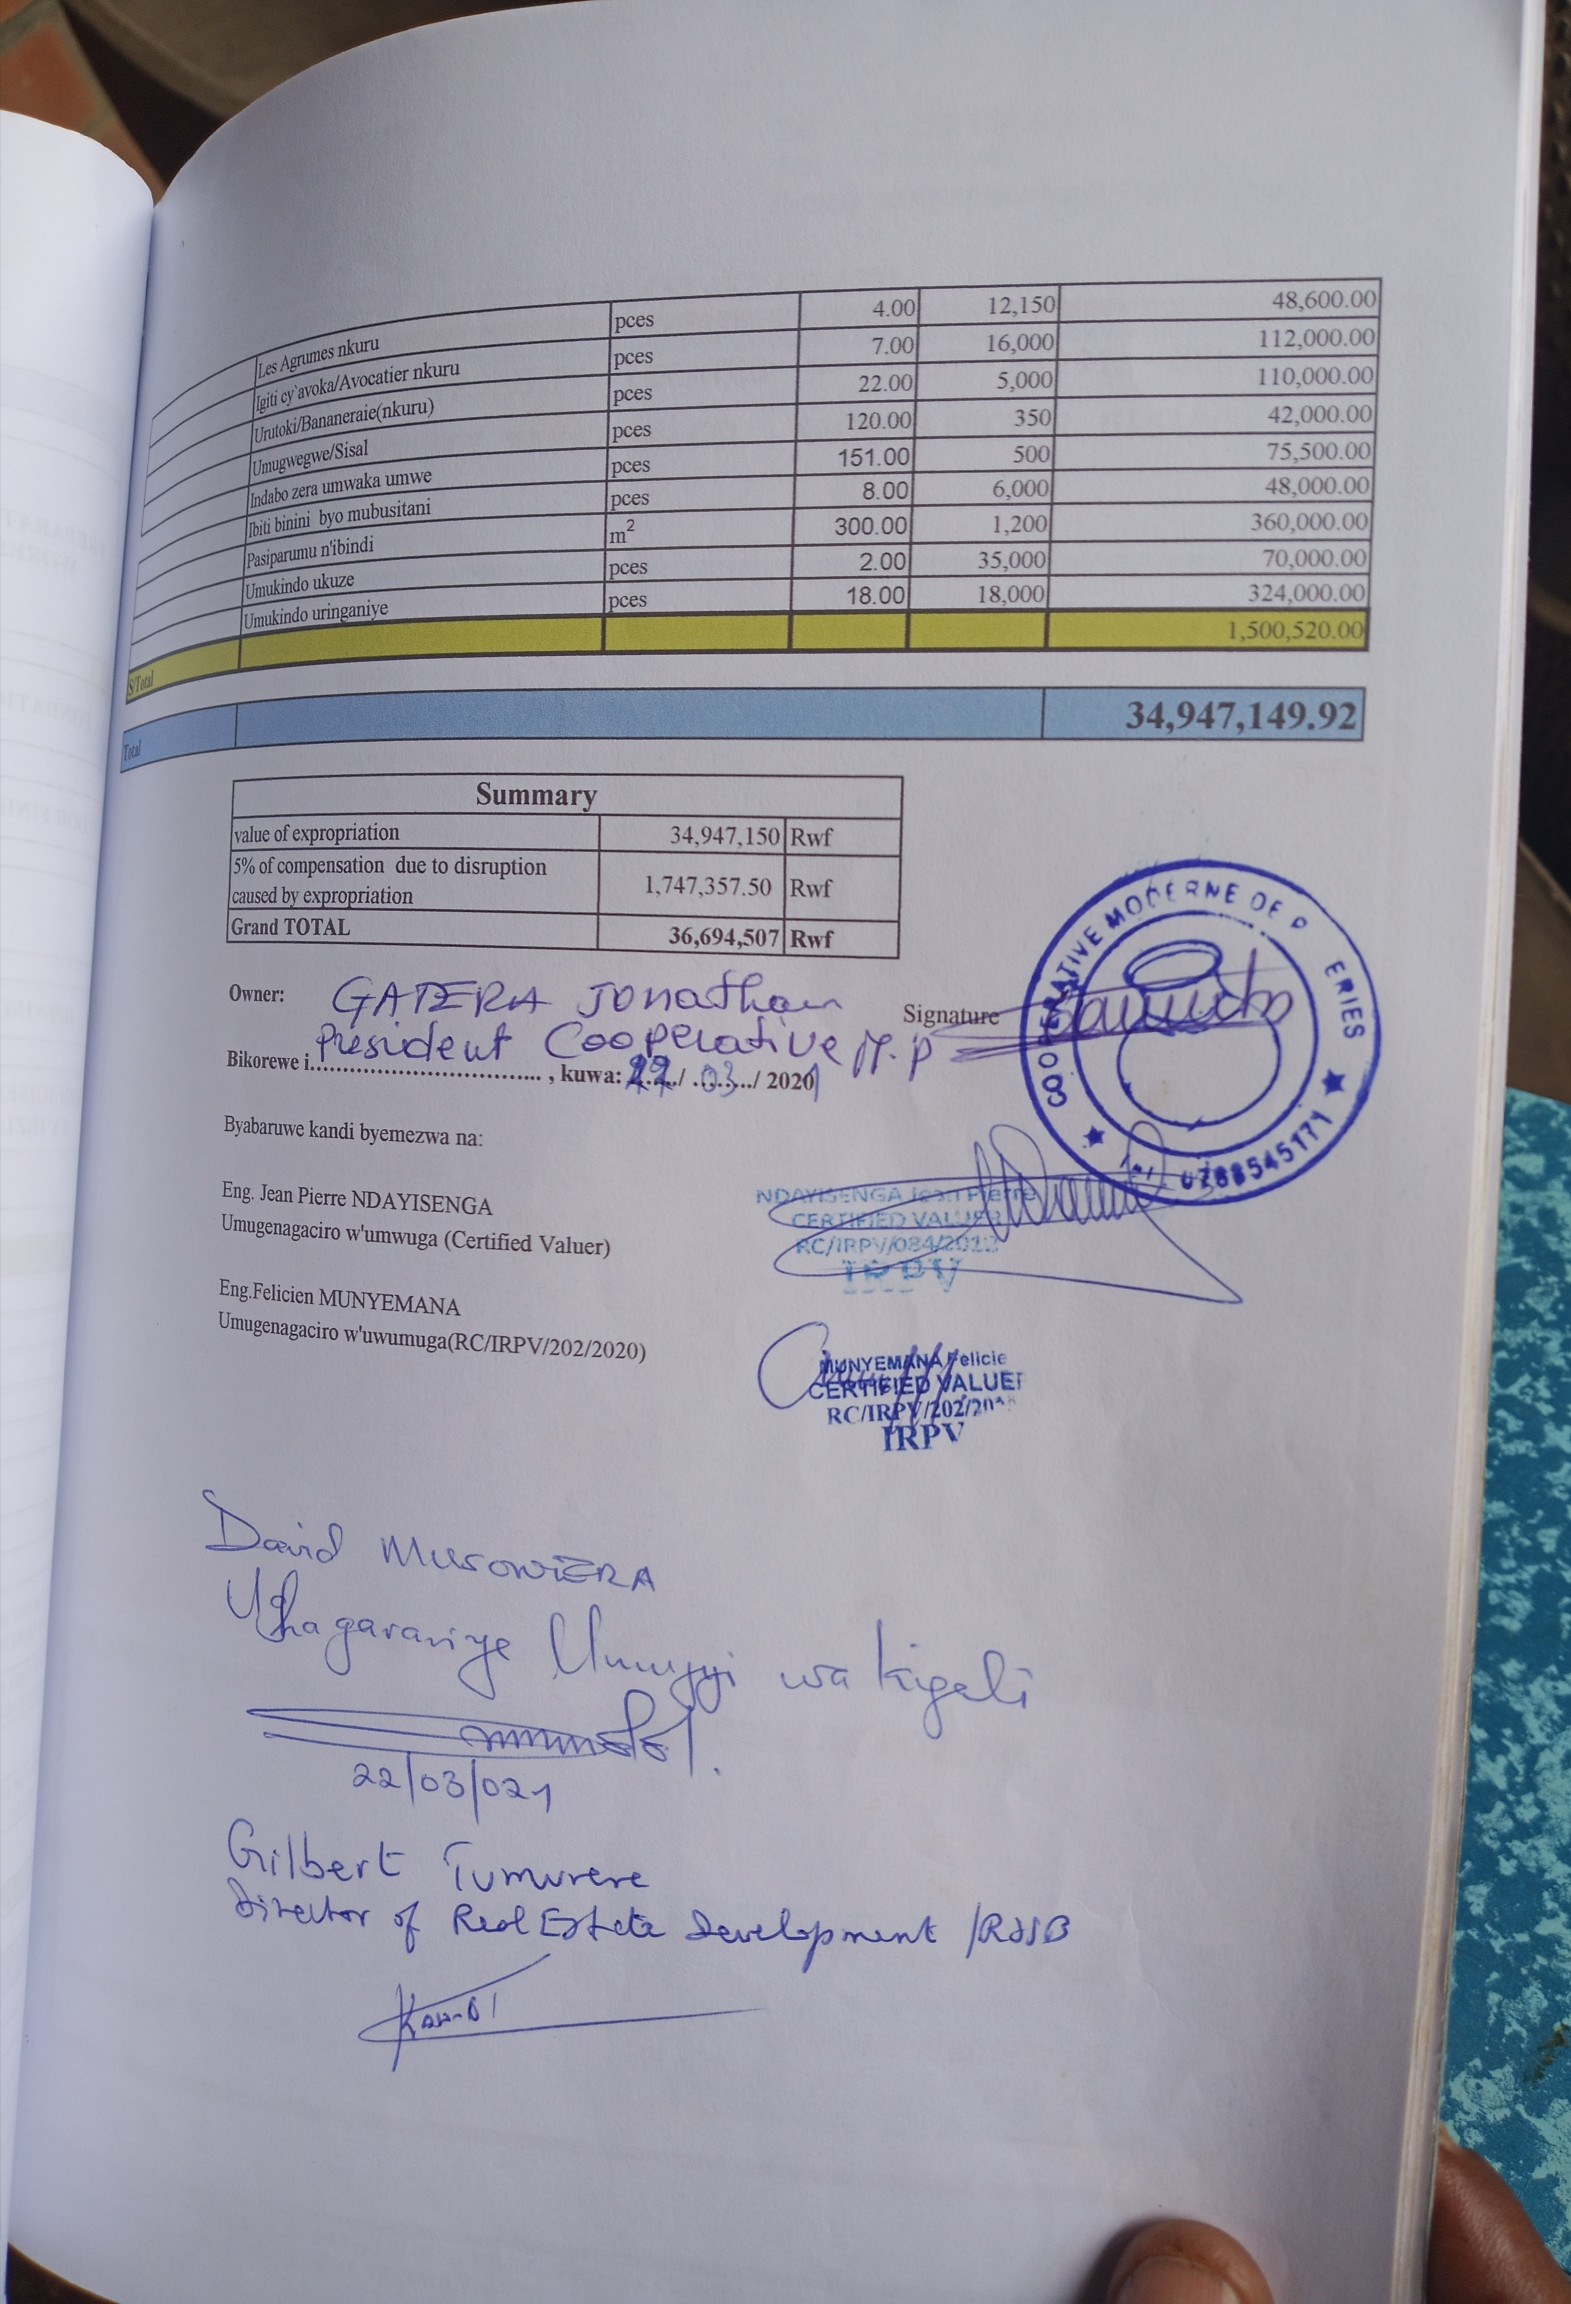 Les Agrumes nkuru pces 4.00 12,150 48,600.00
Igiti cy`avoka/Avocatier nkuru pces 7.00 16,000 112,000.00
Urutoki/Bananeraie(nkuru) pces 22.00 5,000 110,000.00
Umugwegwe/Sisal pces 120.00 350 42,000.00
Indabo zera umwaka umwe pces 151.00 500 75,500.00
Ibiti binini byo mubusitani pces 8.00 6,000 48,000.00
Pasiparumu n'ibindi m² 300.00 1,200 360,000.00
Umukindo ukuze pces 2.00 35,000 70,000.00
Umukindo uringaniye pces 18.00 18,000 324,000.00
S/Total 1,500,520.00
Total 34,947,149.92
Summary
value of expropriation 34,947,150 Rwf
5% of compensation due to disruption
caused by expropriation 1,747,357.50 Rwf
Grand TOTAL 36,694,507 Rwf
Owner: GATERA Jonathan
Signature
President Cooperative M.P
Bikorewe i................................. , kuwa: 22/ 03/ 2021
COOPERATIVE MODERNE DE P ERIES
Tel 0788545171
Byabaruwe kandi byemezwa na:
Eng. Jean Pierre NDAYISENGA
Umugenagaciro w'umwuga (Certified Valuer)
NDAYISENGA Jean Pierre
CERTIFIED VALUER
RC/IRPV/084/2012
IRPV
Eng.Felicien MUNYEMANA
Umugenagaciro w'uwumuga(RC/IRPV/202/2020)
MUNYEMANA Felicie
CERTIFIED VALUER
RC/IRPV/202/20
IRPV
David MUSONERA
Uhagarariye Umujyi wa Kigali
22/03/021
Gilbert Tumurere
Director of Real Estate Development /RSSB